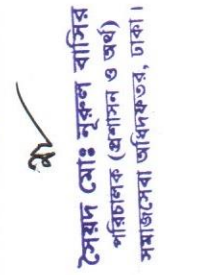 সৈয়দ মোঃ নূরুল বাসির
পরিচালক (প্রশাসন ও অর্থ)
সমাজসেবা অধিদফতর, ঢাকা।